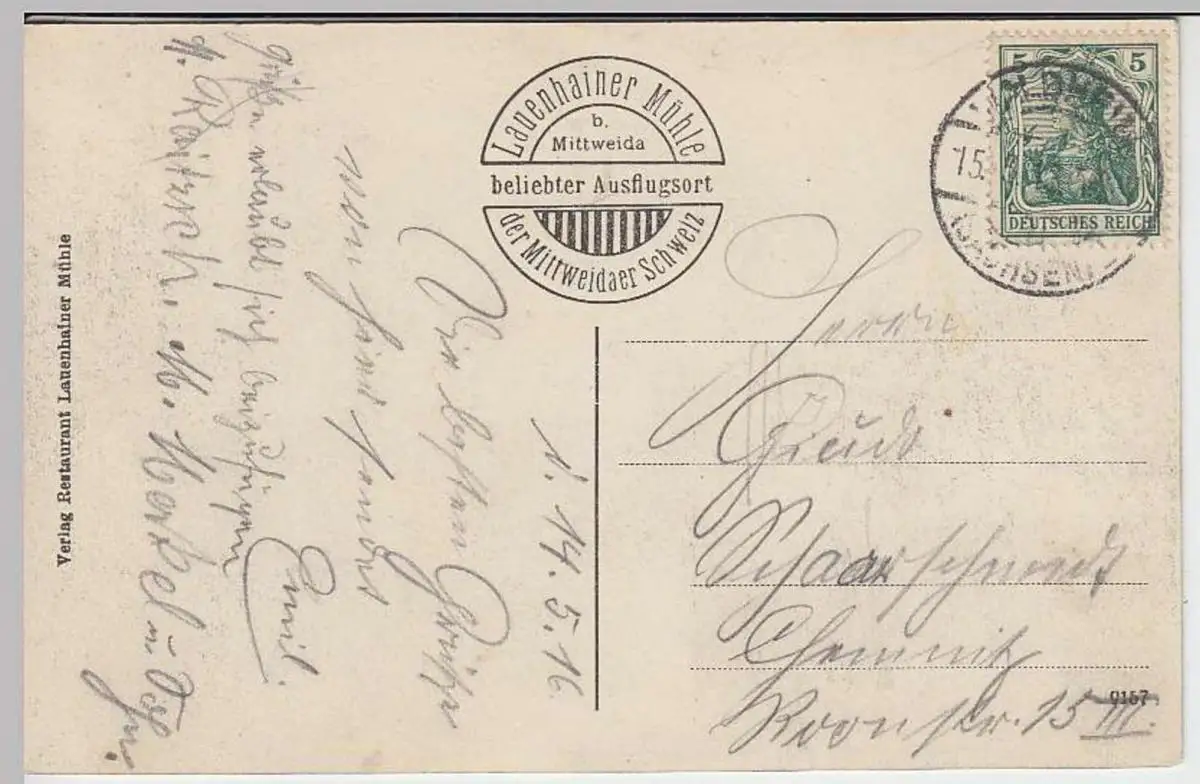 Lauenhainer Mühle
b.
Mittweida
beliebter Ausflugsort
der Mittweidaer Schweiz
5 5
DEUTSCHES REICH
15.
(SACHSEN)
d. 14. 5. 16
Die besten Grüße
von hier sendet
Emil.
Grüße erlaubt sich beizufügen
M. u.
Verlag Restaurant Lauenhainer Mühle
Herrn
Schaarschmidt
Chemnitz
Roonstr. 15 III.
0157